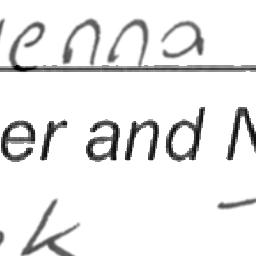 enna
er and N
k